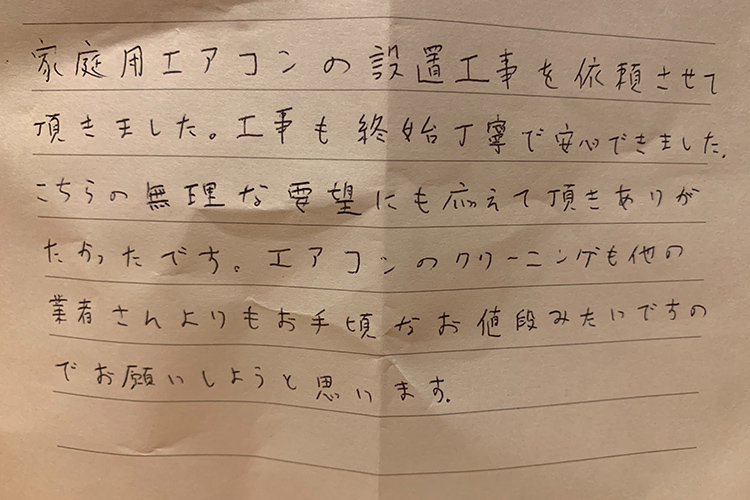 家庭用エアコンの設置工事を依頼させて
頂きました。工事も終始丁寧で安心できました。
こちらの無理な要望にも応えて頂きありが
たかったです。エアコンのクリーニングも他の
業者さんよりもお手頃なお値段みたいですの
でお願いしようと思います。